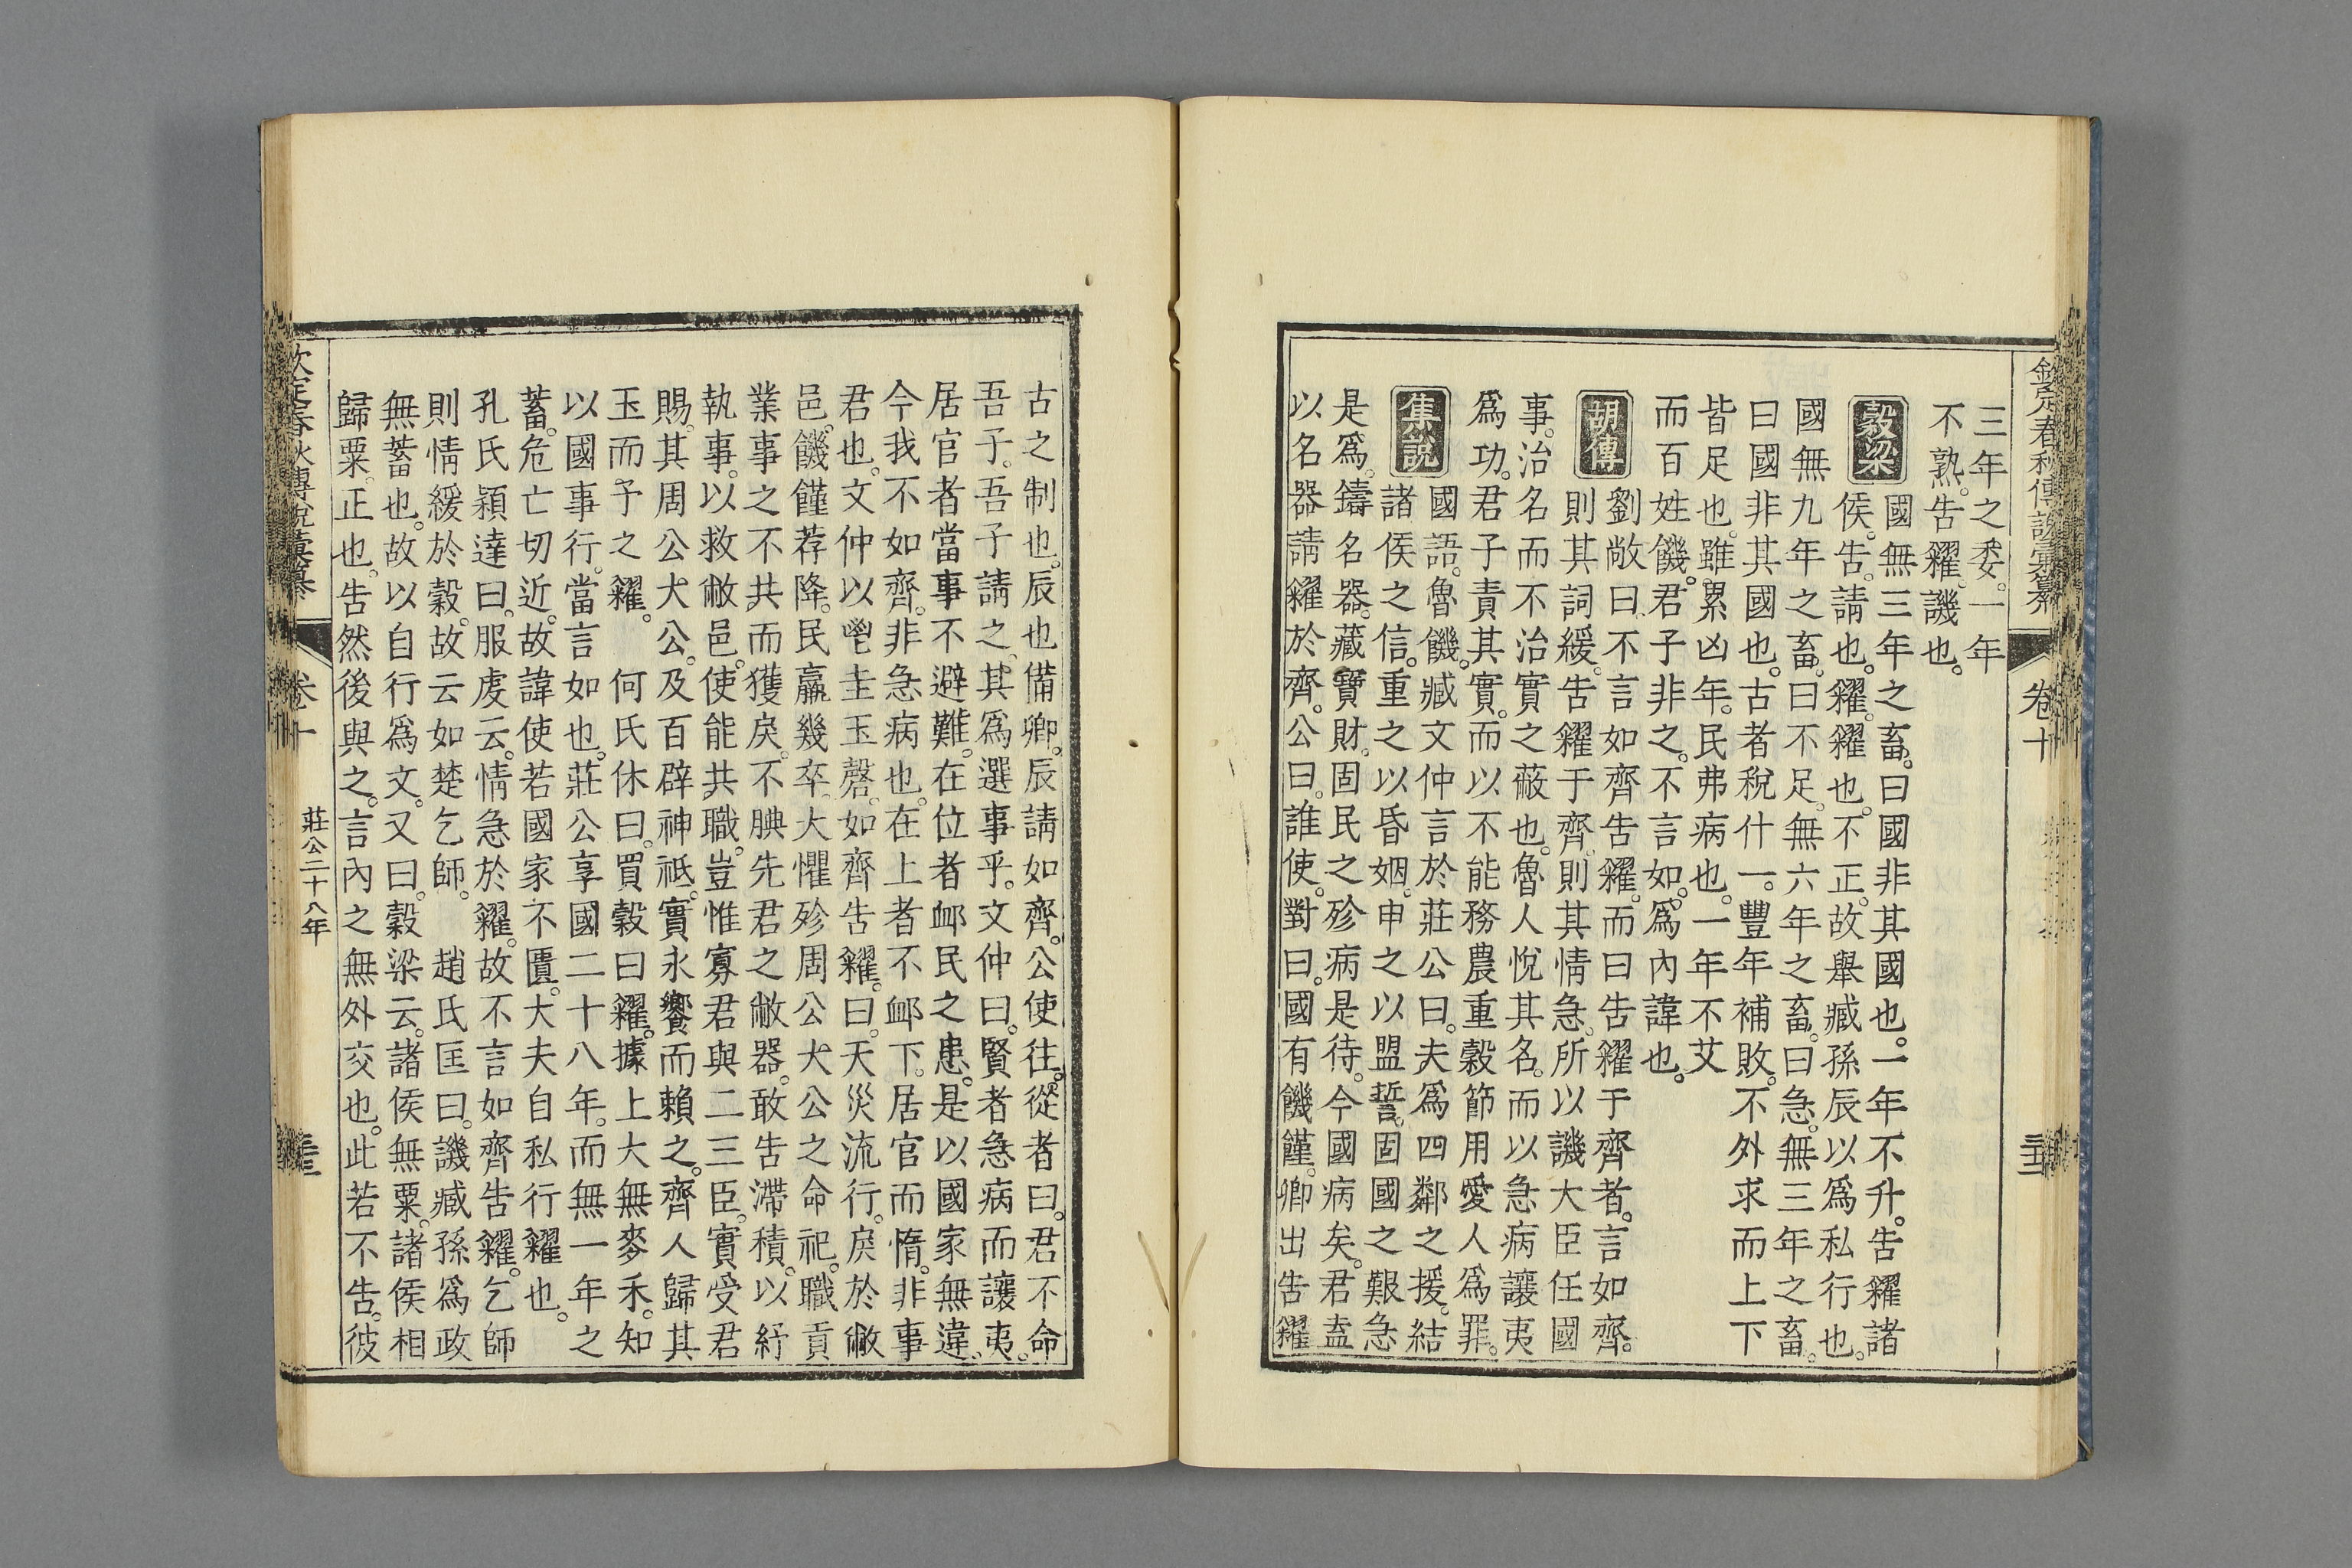 欽定春秋傳說彙纂
卷十
三年之委。一年
不熟。告糴。譏也。
穀梁
國無三年之畜。曰國非其國也。一年不升。告糴諸
侯。告。請也。糴。糴也。不正。故舉臧孫辰以爲私行也。
國無九年之畜。曰不足。無六年之畜。曰急。無三年之畜。
曰國非其國也。古者稅什一。豐年補敗。不外求而上下
皆足也。雖累凶年。民弗病也。一年不艾
而百姓饑。君子非之。不言如。爲內諱也。
胡傳
劉敞曰。不言如齊告糴。而曰告糴于齊者。言如齊。
則其詞緩。告糴于齊。則其情急。所以譏大臣任國
事。治名而不治實之蔽也。魯人悅其名。而以急病讓夷
爲功。君子責其實。而以不能務農重穀節用愛人爲罪。
集說
國語。魯饑。臧文仲言於莊公曰。夫爲四鄰之援。結
諸侯之信。重之以昏姻。申之以盟誓。固國之艱急
是爲。鑄名器。藏寶財。固民之殄病是待。今國病矣。君盍
以名器請糴於齊。公曰。誰使。對曰。國有饑饉。卿出告糴
古之制也。辰也備卿。辰請如齊。公使往。從者曰。君不命
吾子。吾子請之。其爲選事乎。文仲曰。賢者急病而讓夷。
居官者當事不避難。在位者卹民之患。是以國家無違。
今我不如齊。非急病也。在上者不卹下。居官而惰。非事
君也。文仲以鬯圭玉磬。如齊告糴。曰。天災流行。戾於敝
邑。饑饉荐降。民羸幾卒。大懼殄周公太公之命祀。職貢
業事之不共而獲戾。不腆先君之敝器。敢告滯積。以紓
執事。以救敝邑。使能共職。豈惟寡君與二三臣。實受君
賜。其周公太公。及百辟神祗。實永饗而賴之。齊人歸其
玉而予之糴。　何氏休曰。買穀曰糴。據上大無麥禾。知
以國事行。當言如也。莊公享國二十八年。而無一年之
蓄。危亡切近。故諱使若國家不匱。大夫自私行糴也。
孔氏穎達曰。服虔云。情急於糴。故不言如齊告糴。乞師
則情緩於穀。故云如楚乞師。　趙氏匡曰。譏臧孫爲政
無蓄也。故以自行爲文。又曰。穀梁云。諸侯無粟。諸侯相
歸粟。正也。告然後與之。言內之無外交也。此若不告。彼
欽定春秋傳說彙纂
卷十
莊公二十八年